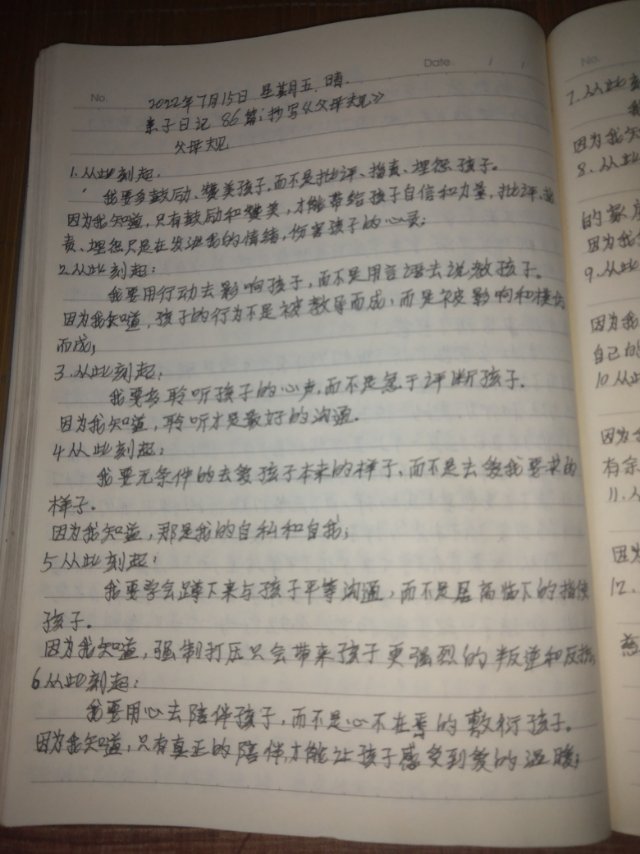 No.
Date / /
2022年7月15日 星期五 晴.
亲子日记 86篇:抄写《父母规》
父母规
1.从此刻起:
我要多鼓励、赞美孩子,而不是批评、指责、埋怨孩子。
因为我知道,只有鼓励和赞美,才能带给孩子自信和力量,批评、指
责、埋怨只是在发泄我的情绪,伤害孩子的心灵;
2.从此刻起:
我要用行动去影响孩子,而不是用言语去说教孩子。
因为我知道,孩子的行为不是被教导而成,而是被影响和模仿
而成;
3.从此刻起:
我要多聆听孩子的心声,而不是急于评断孩子.
因为我知道,聆听才是最好的沟通.
4从此刻起:
我要无条件的去爱孩子本来的样子、而不是去爱我要求的
样子.
因为我知道,那是我的自私和自我;
5从此刻起:
我要学会蹲下来与孩子平等沟通,而不是居高临下的指使
孩子.
因为我知道,强制打压只会带来孩子更强烈的叛逆和反抗;
6从此刻起:
我要用心去陪伴孩子,而不是心不在焉的敷衍孩子.
因为我知道,只有真正的陪伴,才能让孩子感受到爱的温暖;
No.
7.从此刻
因为我
8.从此
的
因为我
9.从此
因为我
自己的
10从此
因为
有余
11.从
因为
12.